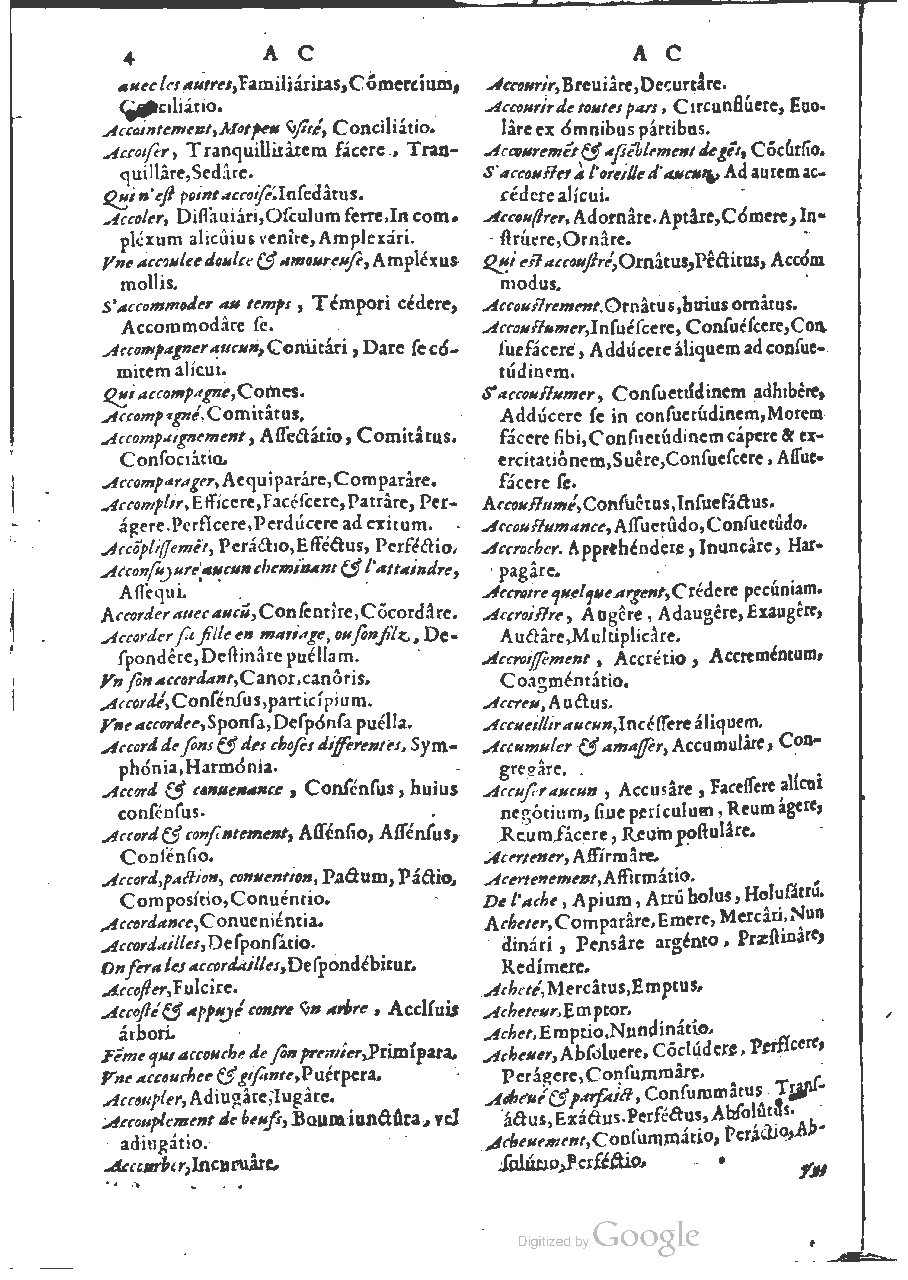 4 A C
auec les autres,Familiáritas,Cómercium,
Conciliátio.
Accointement,Mot peu vsité, Conciliátio.
Accoiser, Tranquillitâtem fácere, Tran-
quillâre,Sedâre.
Qui n'est point accoisé.Insedâtus.
Accoler, Dissauiári,Osculum ferre,In com-
pléxum alicûius venîre,Amplexári.
Vne accoulee doulce & amoureuse,Ampléxus
mollis.
S'accommoder au temps, Témpori cédere,
Accommodâre se.
Accompagner aucun,Comitári, Dare se có-
mitem alícui.
Qui accompagne,Comes.
Accompagné,Comitâtus.
Accompaignement, Assectátio, Comitâtus.
Consociátio.
Accomparager,Aequiparáre,Comparâre.
Accomplir,Effícere,Facéscere,Patrâre, Per-
ágere.Perfícere,Perdúcere ad exitum.
Accõplissemẽt,Peráctio,Efféctus, Perféctio.
Acconsuyure aucun cheminant & l'attaindre,
Assequi.
Accorder auec aucũ,Consentîre,Cõcordâre.
Accorder sa fille en mariage, ou son filz, De-
spondêre,Destinâre puéllam.
Vn son accordant,Canor,canôris.
Accordé,Consénsus,particípium.
Vne accordee,Sponsa,Despónsa puélla.
Accord de sons & des choses differentes, Sym-
phónia,Harmónia.
Accord & conuenance, Consénsus, huius
consénsus.
Accord & consentement, Assénsio, Assénsus,
Consénsio.
Accord,paction, conuention, Pactum, Páctio,
Composítio,Conuéntio.
Accordance,Conueniéntia.
Accordailles,Desponsátio.
On fera les accordailles,Despondébitur.
Accoster,Fulcîre.
Accosté & appuyé contre vn arbre, Acclíuis
árbori.
Fẽme qui accouche de son premier,Primípara.
Vne accouchee & gisante,Puérpera.
Accoupler, Adiugâre,Iugâre.
Accouplement de beufs, Boum iunctûra, vel
adiugátio.
Accourber,Incuruâre.
A C
Accourir,Breuiâre,Decurtâre.
Accourir de toutes pars, Circunflúere, Euo-
lâre ex ómnibus pártibus.
Accouremẽt & assẽblement de gẽt, Cõcûrsio.
S'accouster à l'oreille d'aucun, Ad aurem ac-
cédere alícui.
Accoustrer, Adornâre.Aptâre,Cómere, In-
strúere,Ornâre.
Qui est accoustré,Ornâtus,Pêctitus, Accóm
modus.
Accoustrement.Ornâtus,huius ornâtus.
Accoustumer,Insuéscere, Consuéscere,Con
suefácere, Addúcere áliquem ad consue-
túdinem.
S'accoustumer, Consuetúdinem adhibêre,
Addúcere se in consuetúdinem,Morem
fácere sibi,Consuetúdinem cápere & ex-
ercitatiônem,Suêre,Consuescere, Assue-
fácere se.
Accoustumé,Consuêtus,Insuefáctus.
Accoustumance, Assuetûdo,Consuetûdo.
Accrocher. Apprehéndere, Inuncâre, Har-
pagâre.
Accroire quelque argent,Crédere pecúniam.
Accroistre, Augêre, Adaugêre, Exaugêre,
Auctâre,Multiplicâre.
Accroissement, Accrétio, Accreméntum,
Coagméntátio.
Accreu, Auctus.
Accueillir aucun,Incéssere áliquem.
Accumuler & amasser, Accumulâre, Con-
gregâre.
Accuser aucun, Accusâre, Facessere alícui
negótium, siue perículum, Reum ágere,
Reum fácere, Reum postulâre.
Acertener, Affirmâre.
Acertenement,Affirmátio.
De l'ache, Apium, Atrũ holus, Holusâtrũ.
Acheter,Comparâre,Emere, Mercâri,Nun
dinári, Pensâre argénto, Præstinâre,
Redímere.
Acheté,Mercâtus,Emptus.
Acheteur,Emptor.
Achet,Emptio,Nundinátio.
Acheuer, Absoluere, Cõclúdere, Perfícere,
Perágere,Consummâre.
Acheué & parfaict, Consummâtus, Trans-
áctus, Exáctus.Perféctus, Absolûtus.
Acheuement,Consummátio, Peráctio,Ab-
solútio,Perféctio.
Vn
Digitized by Google